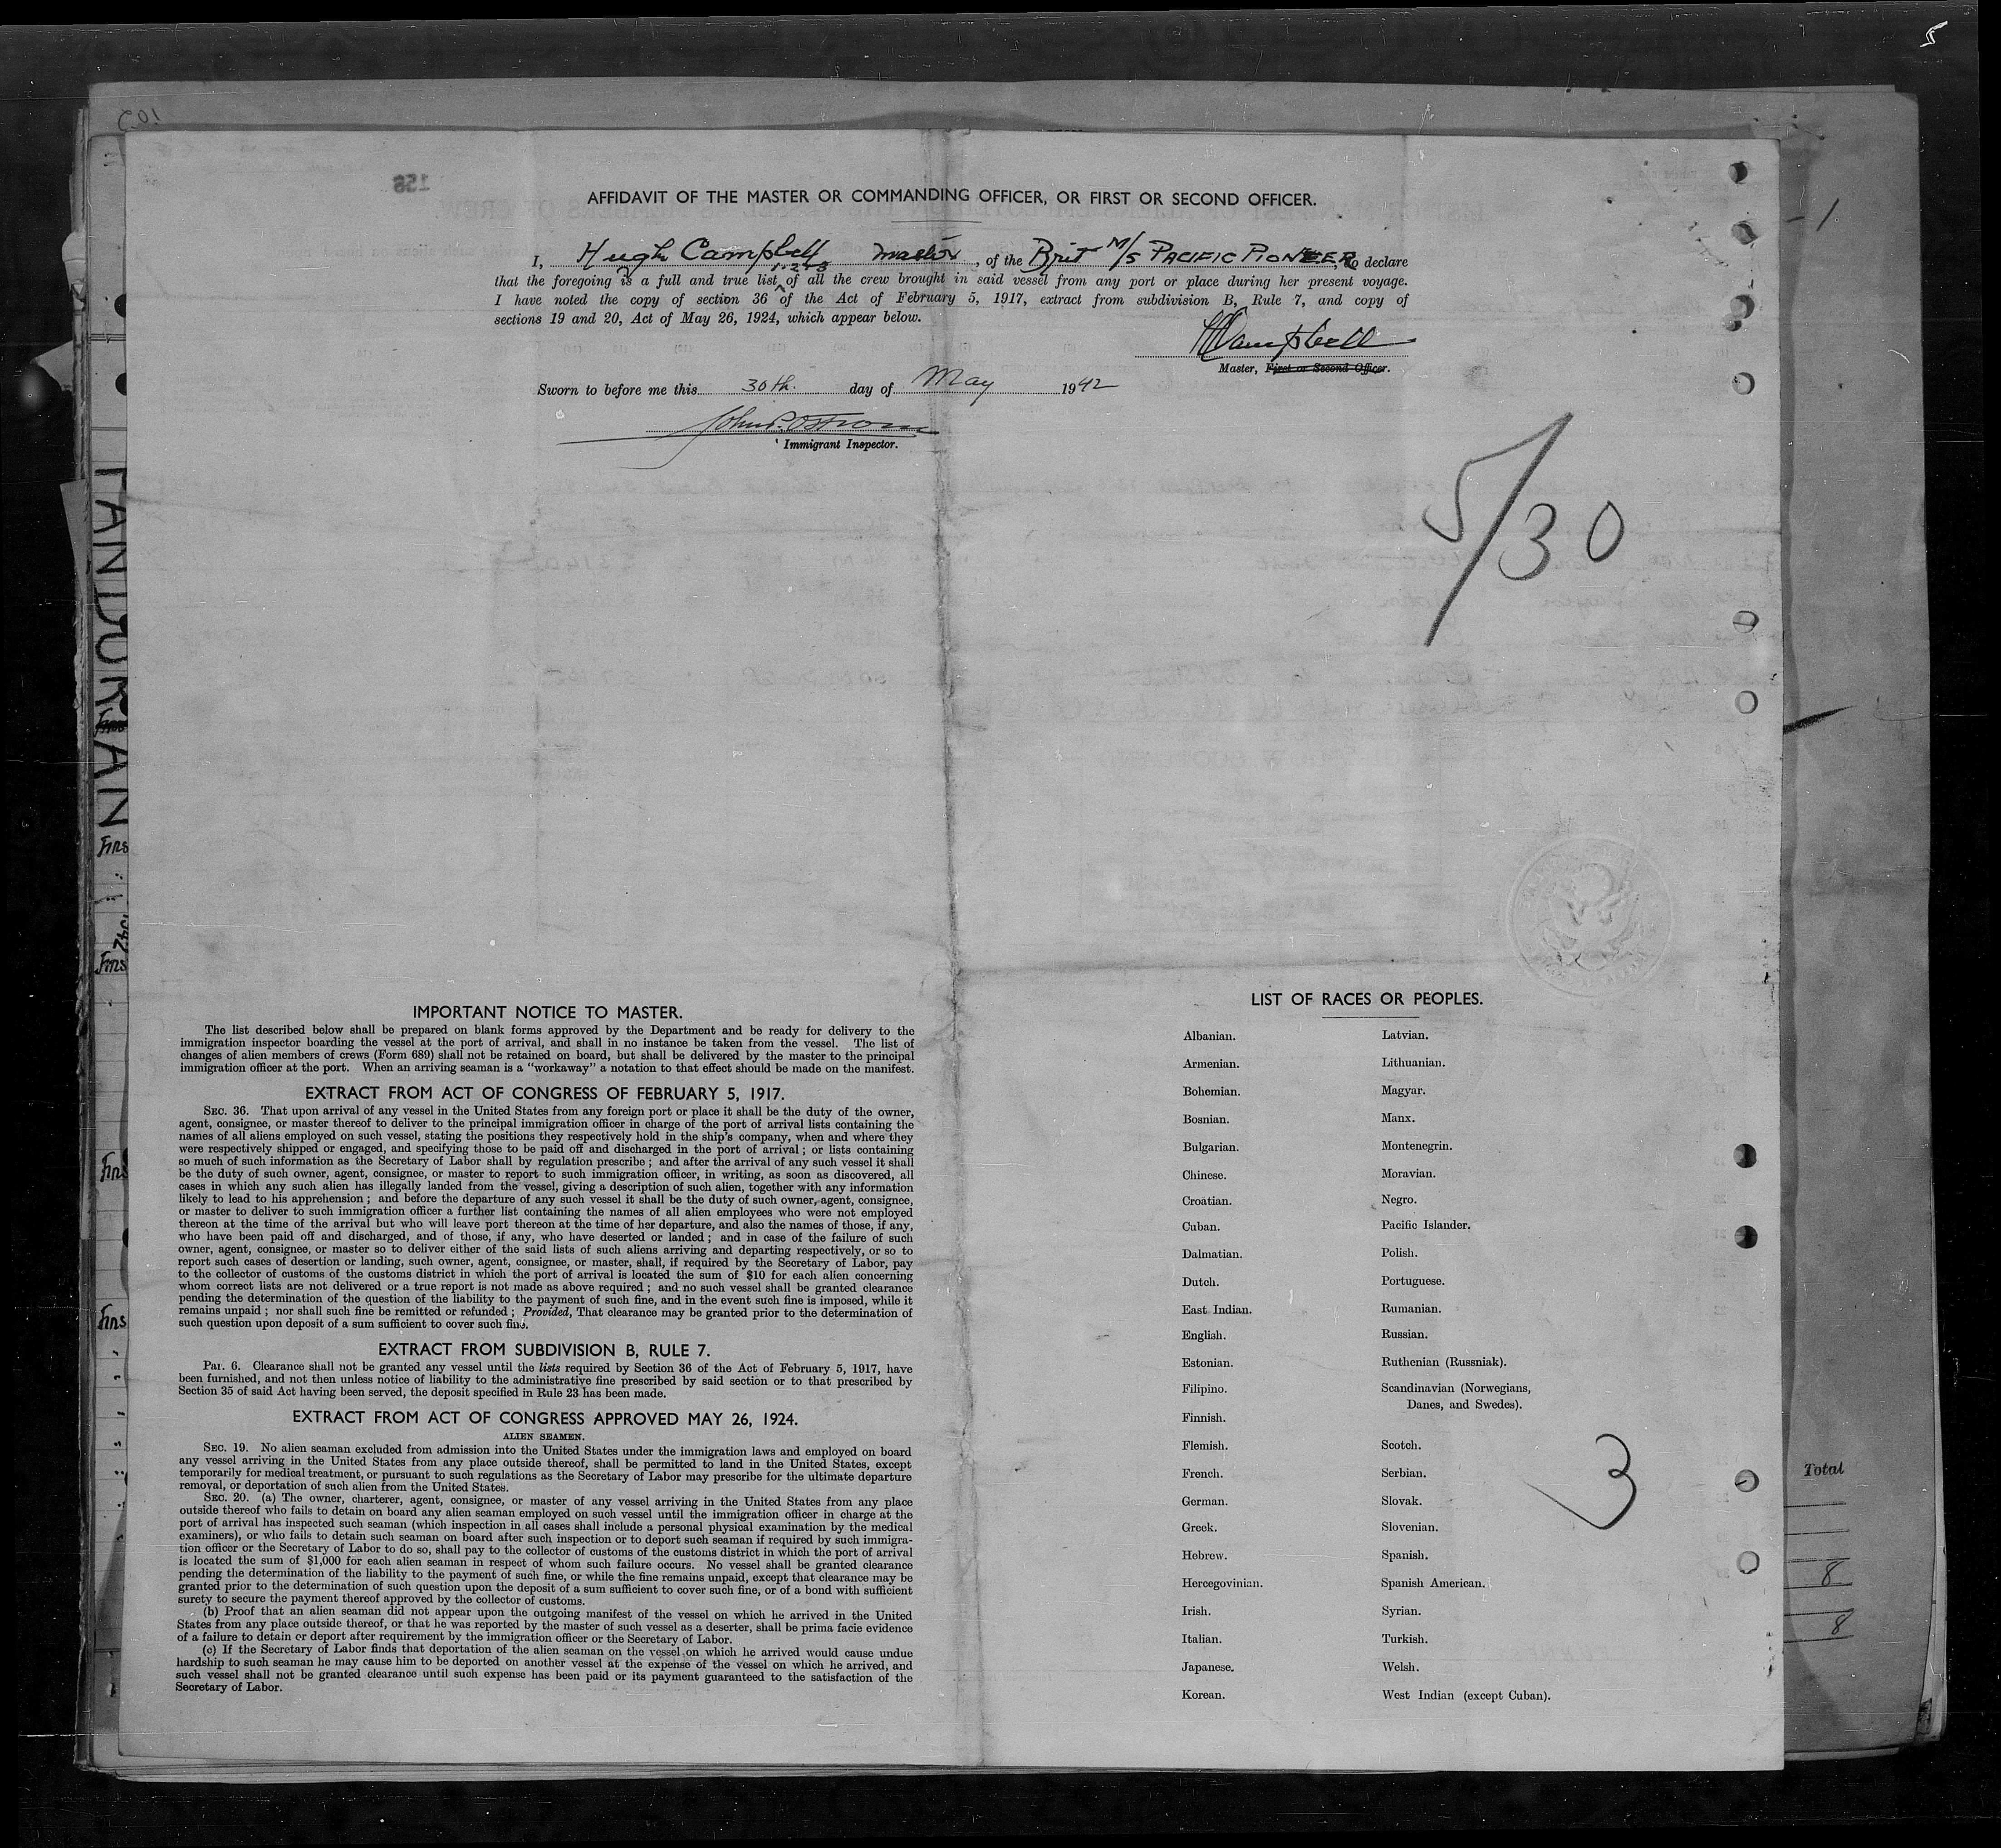 5
158
AFFIDAVIT OF THE MASTER OR COMMANDING OFFICER, OR FIRST OR SECOND OFFICER.
I, Hugh Campbell master, of the Brit M/S PACIFIC PIONEER, do declare
1-2-3
that the foregoing is a full and true list of all the crew brought in said vessel from any port or place during her present voyage.
I have noted the copy of section 36 of the Act of February 5, 1917, extract from subdivision B, Rule 7, and copy of
sections 19 and 20, Act of May 26, 1924, which appear below.
HCampbell
Master, First or Second Officer.
Sworn to before me this 30th. day of May 1942
John P. Ostrom
Immigrant Inspector.
5/30
- 1
IMPORTANT NOTICE TO MASTER.
The list described below shall be prepared on blank forms approved by the Department and be ready for delivery to the
immigration inspector boarding the vessel at the port of arrival, and shall in no instance be taken from the vessel. The list of
changes of alien members of crews (Form 689) shall not be retained on board, but shall be delivered by the master to the principal
immigration officer at the port. When an arriving seaman is a "workaway" a notation to that effect should be made on the manifest.
EXTRACT FROM ACT OF CONGRESS OF FEBRUARY 5, 1917.
SEC. 36. That upon arrival of any vessel in the United States from any foreign port or place it shall be the duty of the owner,
agent, consignee, or master thereof to deliver to the principal immigration officer in charge of the port of arrival lists containing the
names of all aliens employed on such vessel, stating the positions they respectively hold in the ship's company, when and where they
were respectively shipped or engaged, and specifying those to be paid off and discharged in the port of arrival; or lists containing
so much of such information as the Secretary of Labor shall by regulation prescribe; and after the arrival of any such vessel it shall
be the duty of such owner, agent, consignee, or master to report to such immigration officer, in writing, as soon as discovered, all
cases in which any such alien has illegally landed from the vessel, giving a description of such alien, together with any information
likely to lead to his apprehension; and before the departure of any such vessel it shall be the duty of such owner, agent, consignee,
or master to deliver to such immigration officer a further list containing the names of all alien employees who were not employed
thereon at the time of the arrival but who will leave port thereon at the time of her departure, and also the names of those, if any,
who have been paid off and discharged, and of those, if any, who have deserted or landed; and in case of the failure of such
owner, agent, consignee, or master so to deliver either of the said lists of such aliens arriving and departing respectively, or so to
report such cases of desertion or landing, such owner, agent, consignee, or master, shall, if required by the Secretary of Labor, pay
to the collector of customs of the customs district in which the port of arrival is located the sum of $10 for each alien concerning
whom correct lists are not delivered or a true report is not made as above required; and no such vessel shall be granted clearance
pending the determination of the question of the liability to the payment of such fine, and in the event such fine is imposed, while it
remains unpaid; nor shall such fine be remitted or refunded; Provided, That clearance may be granted prior to the determination of
such question upon deposit of a sum sufficient to cover such fine.
EXTRACT FROM SUBDIVISION B, RULE 7.
Par. 6. Clearance shall not be granted any vessel until the lists required by Section 36 of the Act of February 5, 1917, have
been furnished, and not then unless notice of liability to the administrative fine prescribed by said section or to that prescribed by
Section 35 of said Act having been served, the deposit specified in Rule 23 has been made.
EXTRACT FROM ACT OF CONGRESS APPROVED MAY 26, 1924.
ALIEN SEAMEN.
SEC. 19. No alien seaman excluded from admission into the United States under the immigration laws and employed on board
any vessel arriving in the United States from any place outside thereof, shall be permitted to land in the United States, except
temporarily for medical treatment, or pursuant to such regulations as the Secretary of Labor may prescribe for the ultimate departure
removal, or deportation of such alien from the United States.
SEC. 20. (a) The owner, charterer, agent, consignee, or master of any vessel arriving in the United States from any place
outside thereof who fails to detain on board any alien seaman employed on such vessel until the immigration officer in charge at the
port of arrival has inspected such seaman (which inspection in all cases shall include a personal physical examination by the medical
examiners), or who fails to detain such seaman on board after such inspection or to deport such seaman if required by such immigra-
tion officer or the Secretary of Labor to do so, shall pay to the collector of customs of the customs district in which the port of arrival
is located the sum of $1,000 for each alien seaman in respect of whom such failure occurs. No vessel shall be granted clearance
pending the determination of the liability to the payment of such fine, or while the fine remains unpaid, except that clearance may be
granted prior to the determination of such question upon the deposit of a sum sufficient to cover such fine, or of a bond with sufficient
surety to secure the payment thereof approved by the collector of customs.
(b) Proof that an alien seaman did not appear upon the outgoing manifest of the vessel on which he arrived in the United
States from any place outside thereof, or that he was reported by the master of such vessel as a deserter, shall be prima facie evidence
of a failure to detain or deport after requirement by the immigration officer or the Secretary of Labor.
(c) If the Secretary of Labor finds that deportation of the alien seaman on the vessel on which he arrived would cause undue
hardship to such seaman he may cause him to be deported on another vessel at the expense of the vessel on which he arrived, and
such vessel shall not be granted clearance until such expense has been paid or its payment guaranteed to the satisfaction of the
Secretary of Labor.
LIST OF RACES OR PEOPLES.
Albanian. Latvian.
Armenian. Lithuanian.
Bohemian. Magyar.
Bosnian. Manx.
Bulgarian. Montenegrin.
Chinese. Moravian.
Croatian. Negro.
Cuban. Pacific Islander.
Dalmatian. Polish.
Dutch. Portuguese.
East Indian. Rumanian.
English. Russian.
Estonian. Ruthenian (Russniak).
Filipino. Scandinavian (Norwegians,
Danes, and Swedes).
Finnish.
Flemish. Scotch.
French. Serbian.
German. Slovak.
Greek. Slovenian.
Hebrew. Spanish.
Hercegovinian. Spanish American.
Irish. Syrian.
Italian. Turkish.
Japanese. Welsh.
Korean. West Indian (except Cuban).
3
Total
8
8